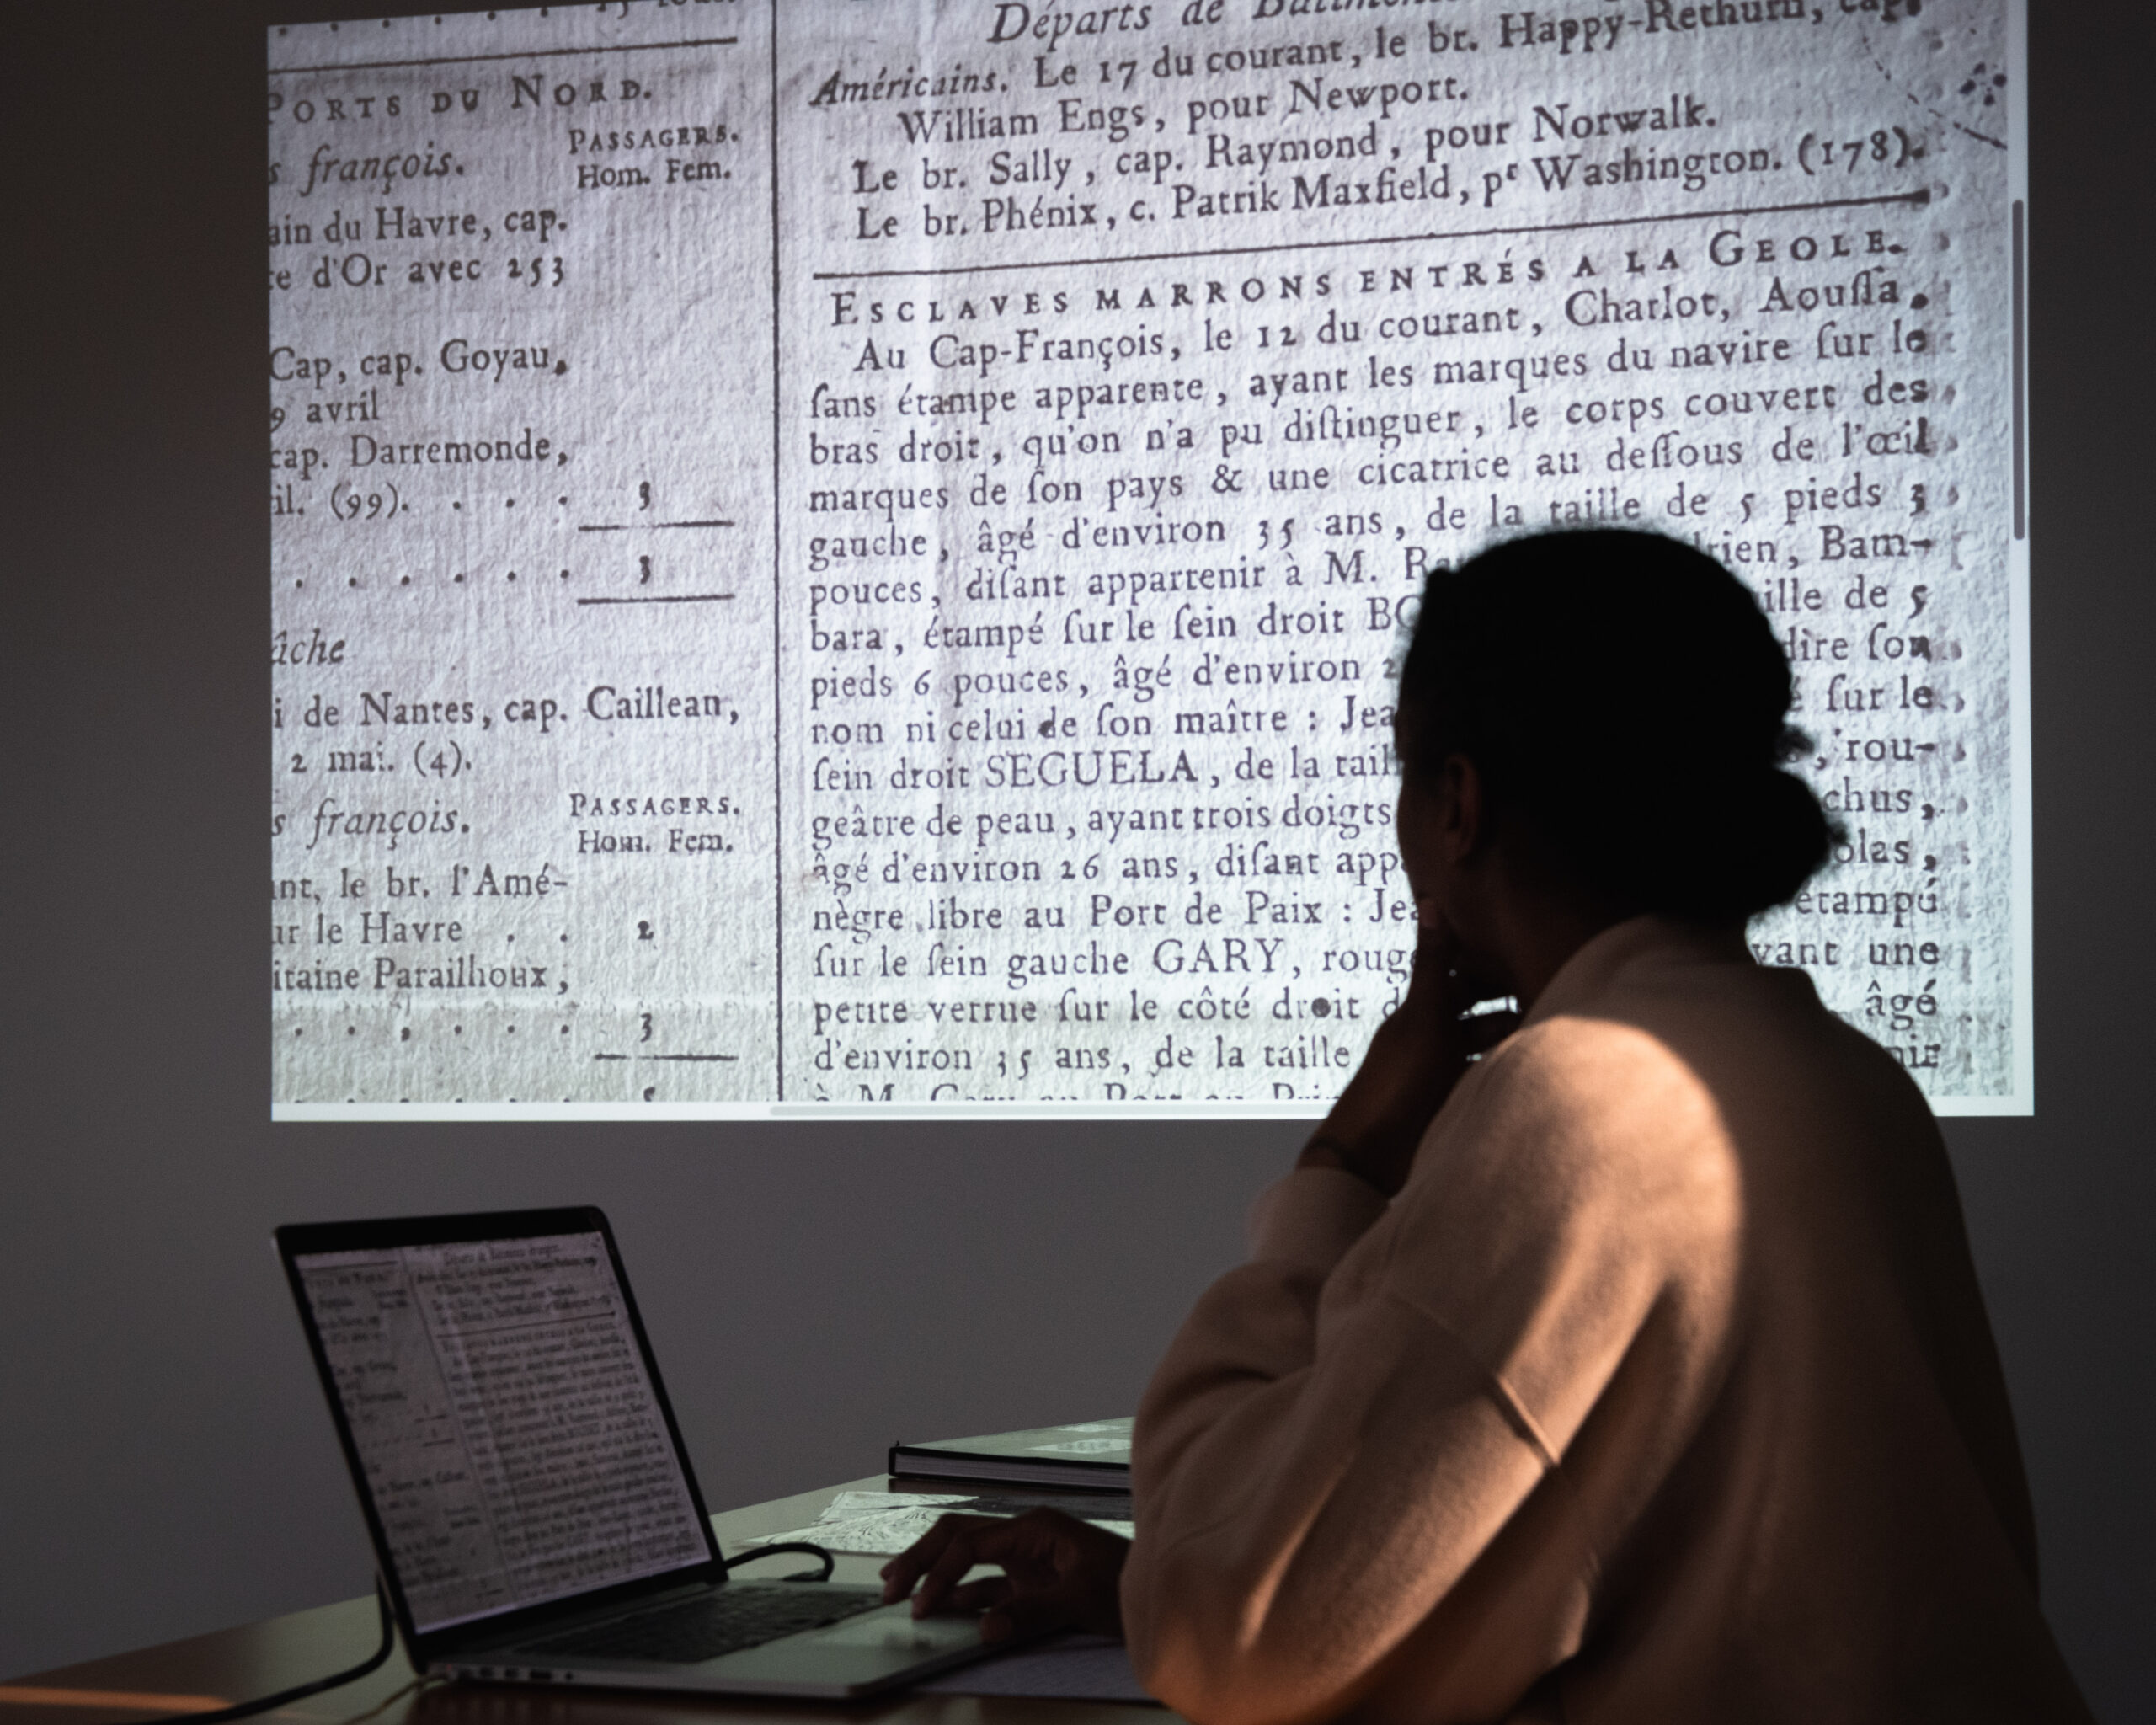 PORTS DU NORD.
françois.
PASSAGERS.
Hom. Fem.
du Havre, cap.
d'Or avec 253
Cap, cap. Goyau,
9 avril
cap. Darremonde,
(99). . . . 3
. . . . . . 3
de Nantes, cap. Caillean,
2 mai. (4).
françois.
PASSAGERS.
Hom. Fem.
le br. l'Amé-
le Havre . . 2
Parailhoux,
. . . . . . 3
Départs de
Américains. Le 17 du courant, le br. Happy-Rethurn, cap.
William Engs, pour Newport.
Le br. Sally, cap. Raymond, pour Norwalk.
Le br. Phénix, c. Patrik Maxfield, pr Washington. (178).
ESCLAVES MARRONS ENTRÉS A LA GEOLE.
Au Cap-François, le 12 du courant, Charlot, Aouſſa,
ſans étampe apparente, ayant les marques du navire ſur le
bras droit, qu'on n'a pu diſtinguer, le corps couvert des
marques de ſon pays & une cicatrice au deſſous de l'œil
gauche, âgé d'environ 35 ans, de la taille de 5 pieds 3
pouces, diſant appartenir à M. Bam-
bara, étampé ſur le ſein droit de 5
pieds 6 pouces, âgé d'environ dire ſon
nom ni celui de ſon maître : ſur le
ſein droit SEGUELA, de la rou-
geâtre de peau, ayant trois doigts
âgé d'environ 26 ans, diſant
nègre libre au Port de Paix : étampé
ſur le ſein gauche GARY, ayant une
petite verrue ſur le côté droit âgé
d'environ 35 ans, de la taille